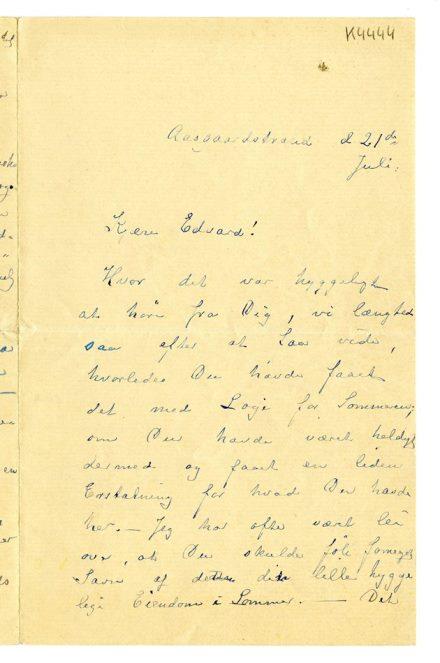 K4444
Aasgaardstrand d 21de
Juli.
Kjære Edvard!
Hvor det var hyggeligt
at høre fra Dig, vi længtede
saa efter at faa vide,
hvorledes Du havde faaet
det med Logi for Sommeren;
om Du havde været heldig
dermed og faaet en liden
Erstatning for hvad Du havde
her. — Jeg har ofte vært lei
over, at Du skulde føle saameget
Savn af din lille hygge
lige Eiendom i Sommer. — Det